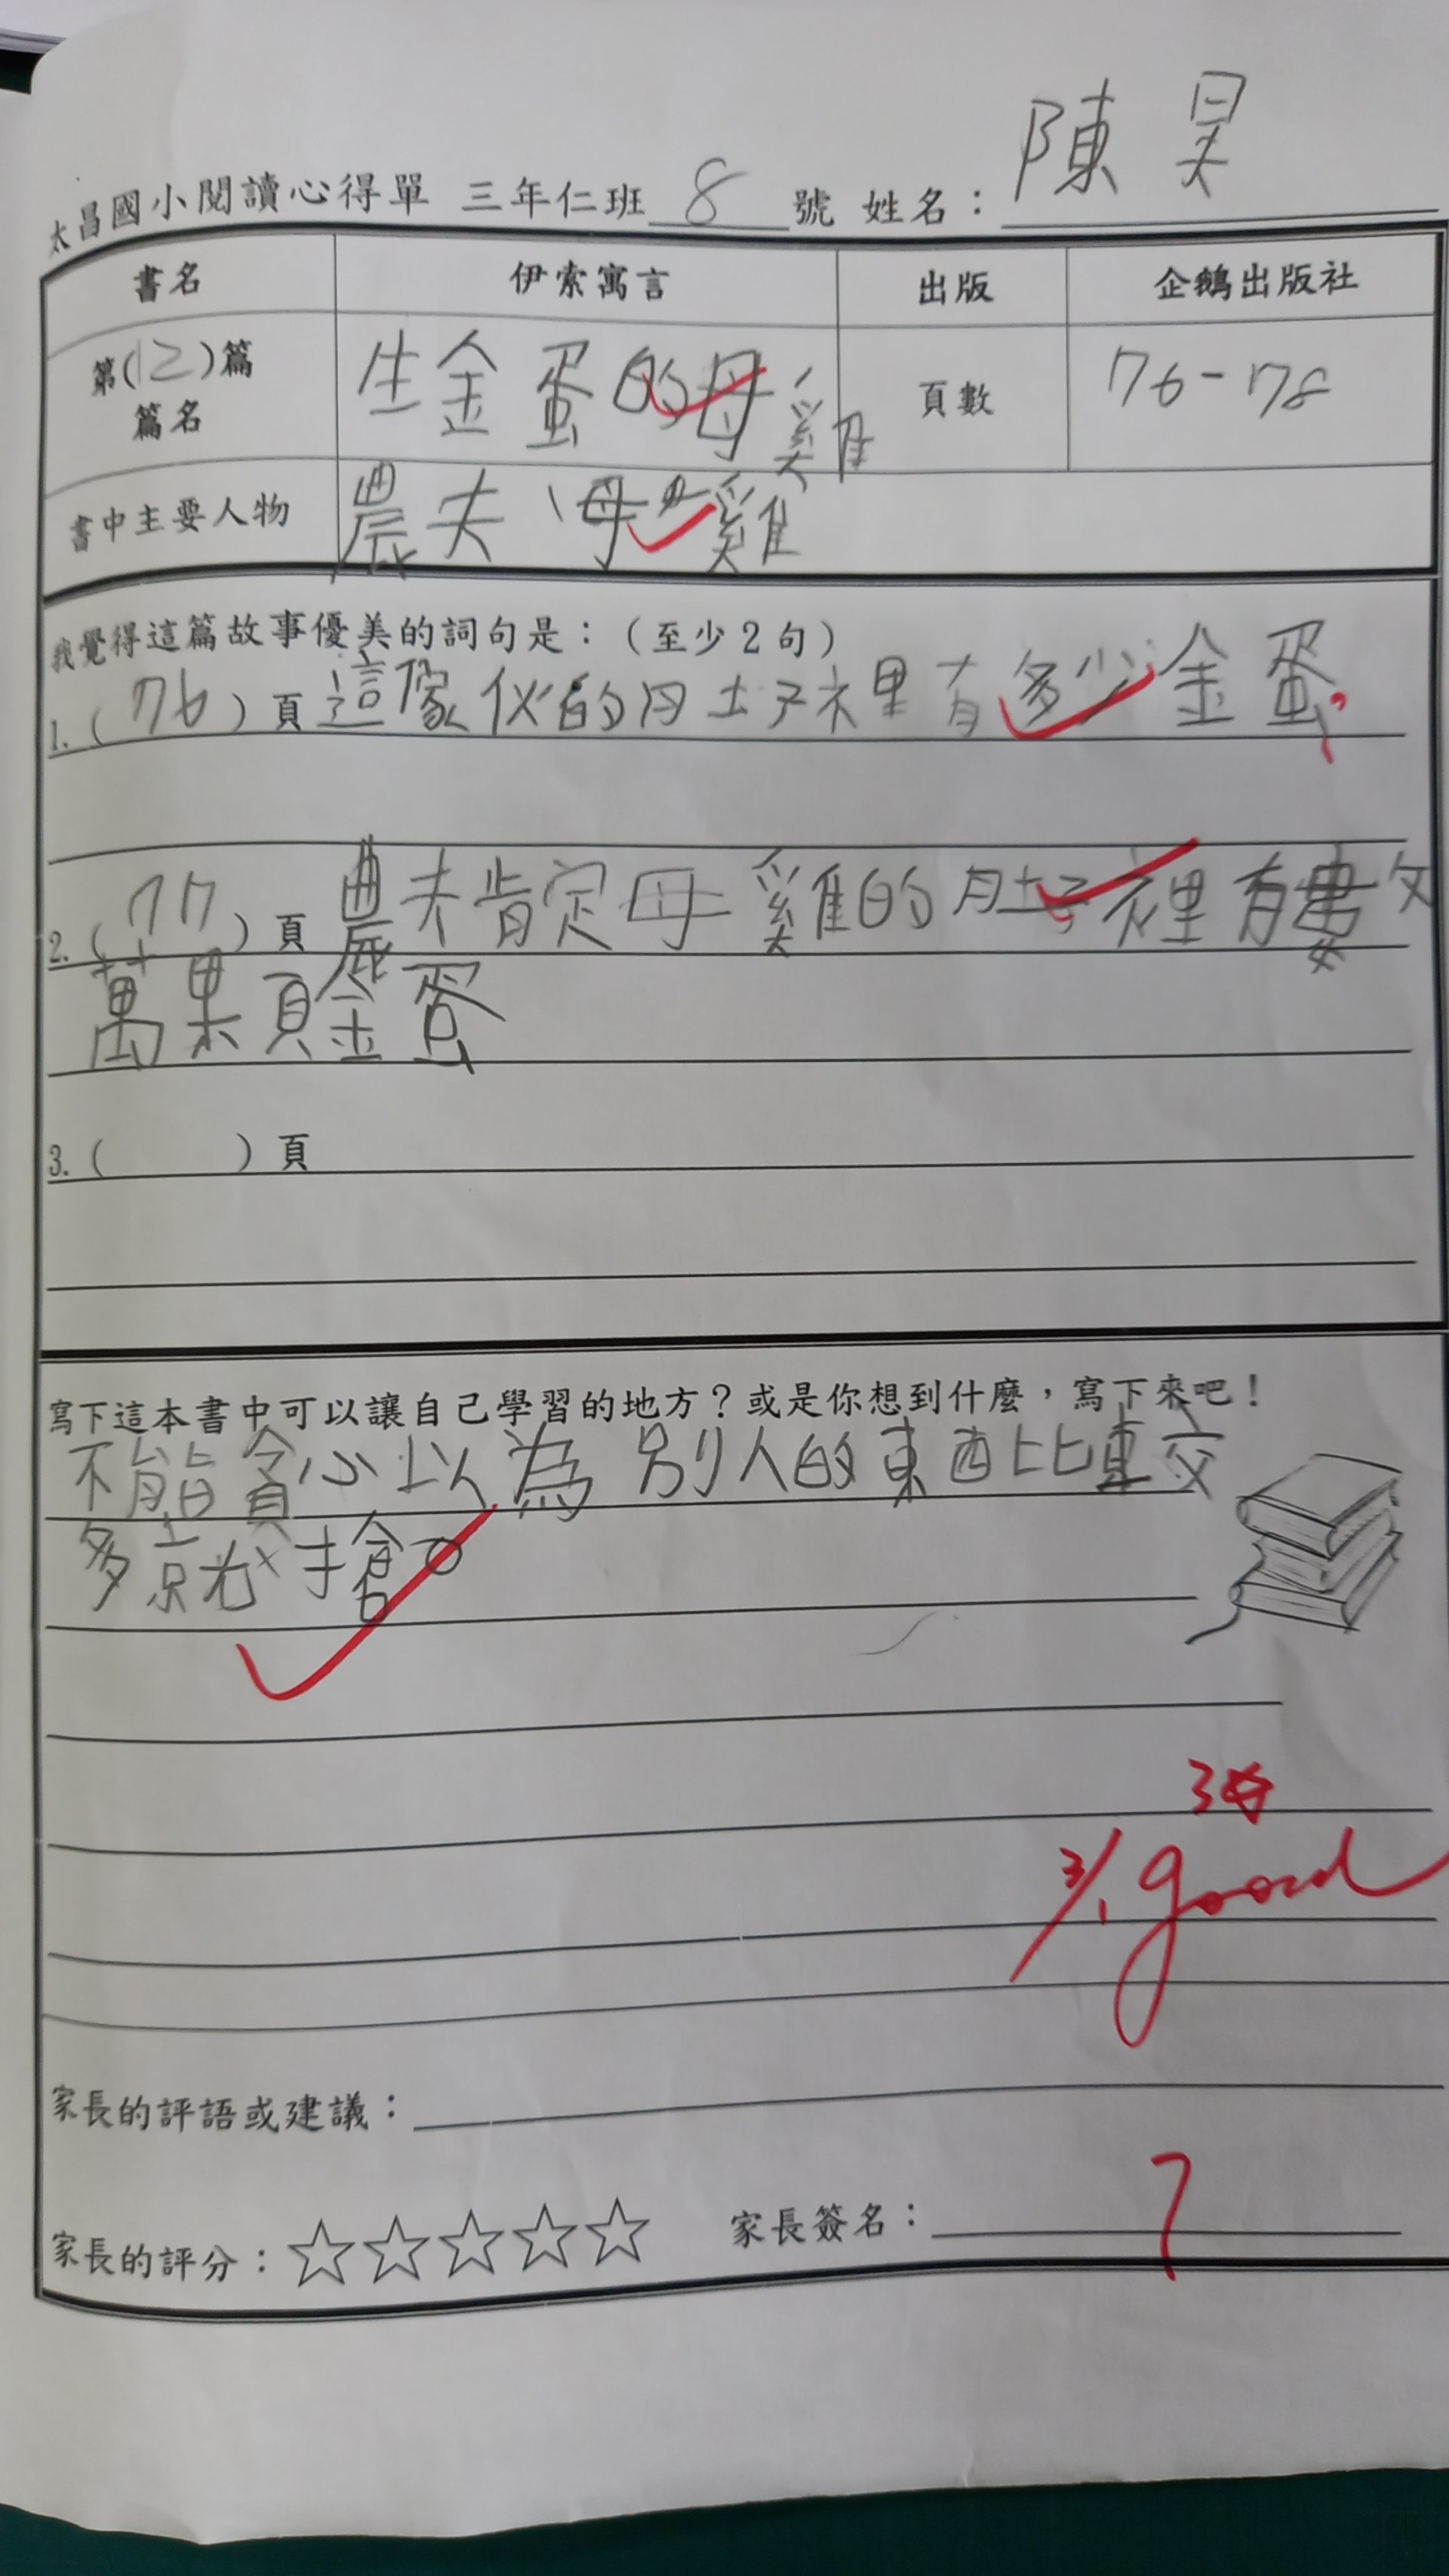 太昌國小閱讀心得單 三年仁班 8 號 姓名：陳昊
書名 伊索寓言 出版 企鵝出版社
第(12)篇 篇名 生金蛋的母雞 頁數 76-78
書中主要人物 農夫、母雞
我覺得這篇故事優美的詞句是：（至少2句）
1.（76）頁 這傢伙的肚子裡有多少金蛋?
2.（77）頁 農夫肯定母雞的肚子裡有數
萬顆金蛋
3.（ ）頁
寫下這本書中可以讓自己學習的地方？或是你想到什麼，寫下來吧！
不能貪心以為別人的東西比較
多就搶。
3☆
3/1 good
家長的評語或建議：
家長的評分：☆☆☆☆☆ 家長簽名：